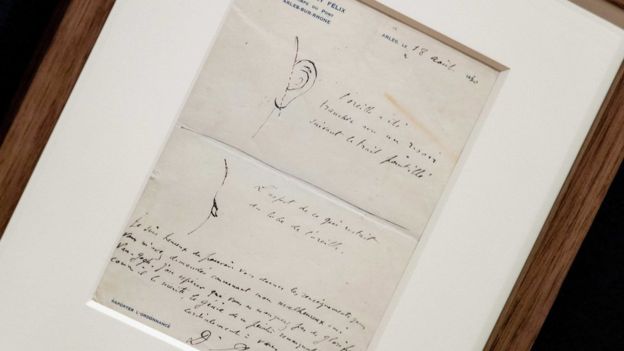 Y FÉLIX
DU PONT
ARLES-SUR-RHONE
ARLES, LE 18 août 1930
L'oreille a été
tranchée avec un rasoir
suivant le trait pointillé
L'aspect de ce qui restait
du lobe de l'oreille.
Je suis heureux de pouvoir vous donner les renseignements que
vous m'avez demandés concernant mon malheureux ami
Van Gogh. J'ose espérer que vous ne manquerez pas de glorifier
comme il le mérite, le génie de ce peintre remarquable,
cordialement à vous
D
RAPPORTER L'ORDONNANCE